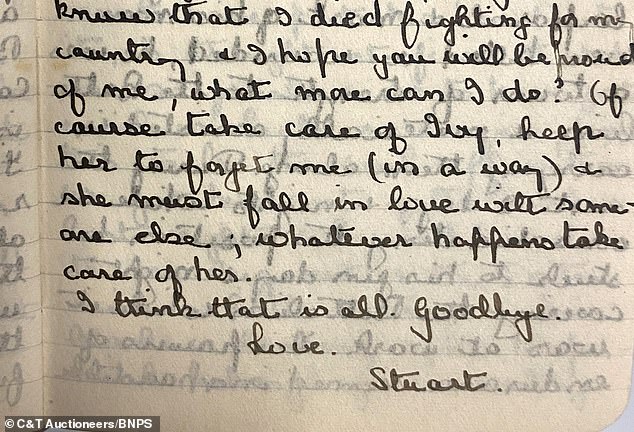 know that I died fighting for my
country & I hope you will be proud
of me, what more can I do? Of
course take care of Ivy, help
her to forget me (in a way) &
she must fall in love with some-
one else; whatever happens take
care of her.
I think that is all. Goodbye.
Love.
Stuart.
© C&T Auctioneers/BNPS